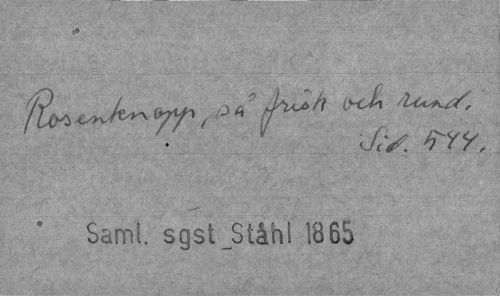 Rosenknopp, så frisk och rund.
Sid. 544.
Saml. sgst Ståhl 1865